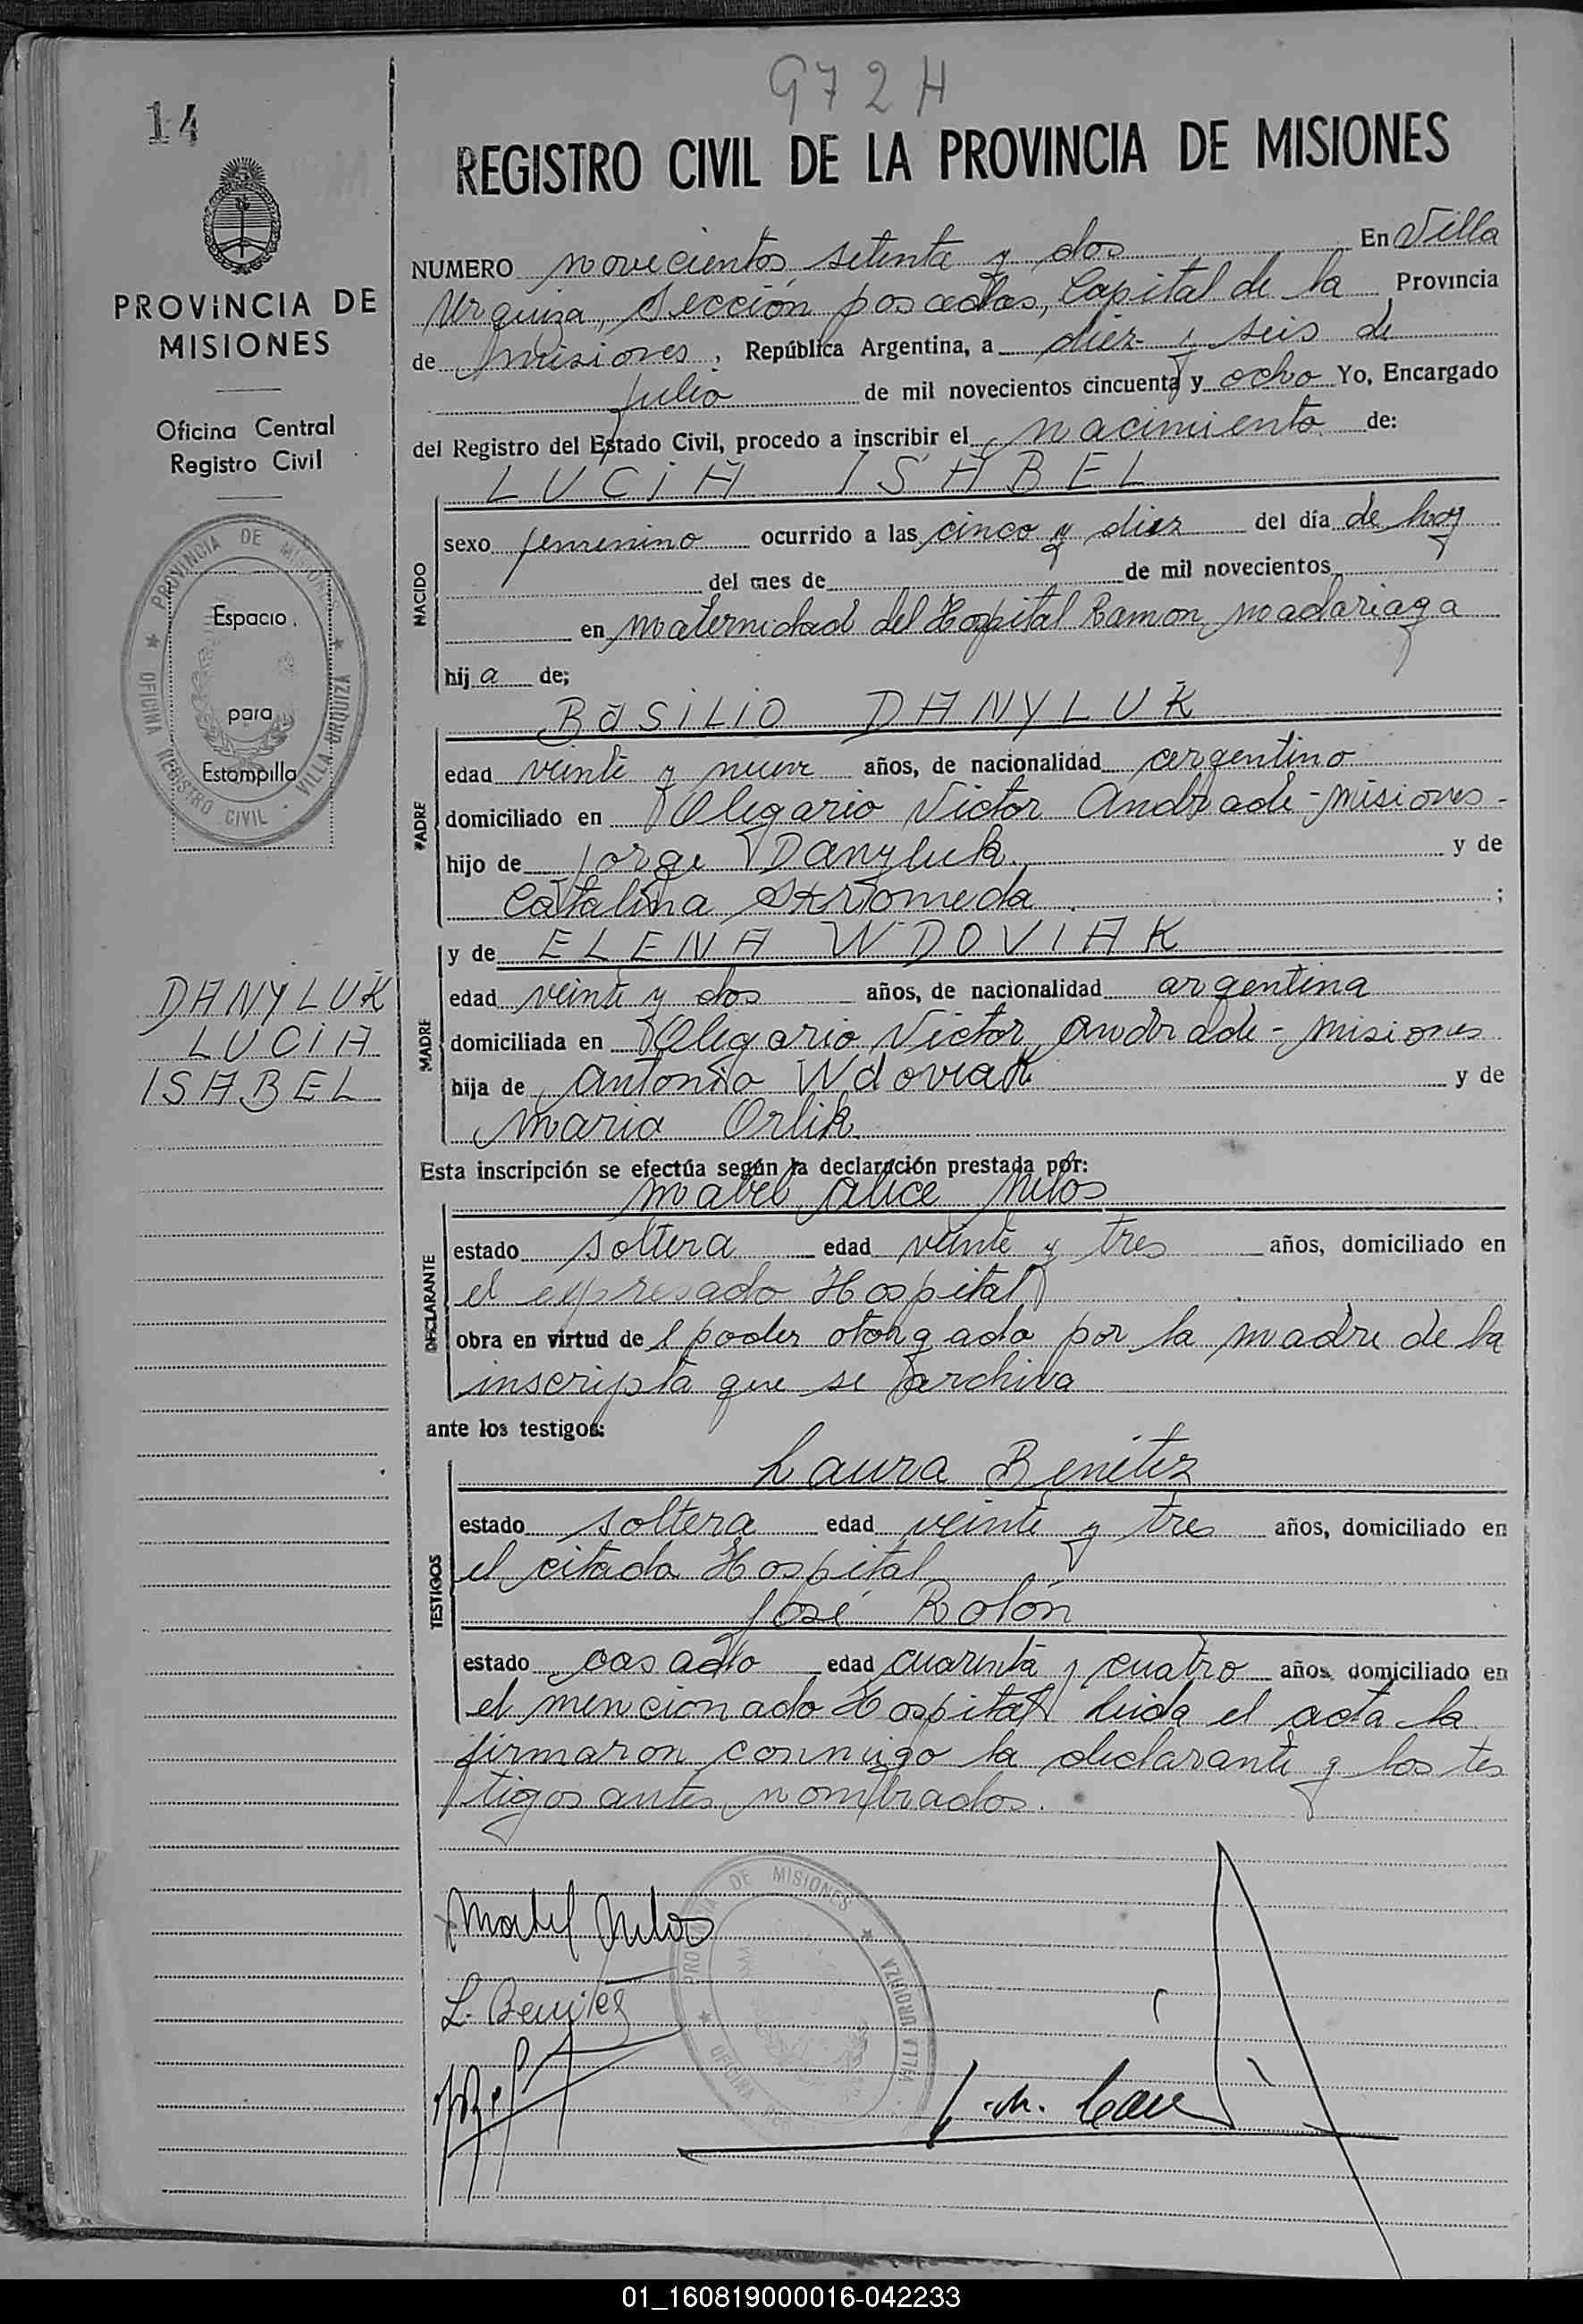 972 H
14
REGISTRO CIVIL DE LA PROVINCIA DE MISIONES
PROVINCIA DE
MISIONES
Oficina Central
Registro Civil
PROVINCIA DE MISIONES ★ OFICINA REGISTRO CIVIL - VILLA URQUIZA ★
Espacio
para
Estampilla
DANYLUK
LUCIA
ISABEL
NUMERO novecientos setenta y dos En Villa
Urquiza, Sección posadas, Capital de la Provincia
de misiones, República Argentina, a diez y seis de
julio de mil novecientos cincuenta y ocho Yo, Encargado
del Registro del Estado Civil, procedo a inscribir el nacimiento de:
LUCIA ISABEL
NACIDO
sexo femenino ocurrido a las cinco y diez del día de hoy
del mes de de mil novecientos
en maternidad del Hospital Ramon madariaga
hija de;
BASILIO DANYLUK
PADRE
edad veinte y nueve años, de nacionalidad argentino
domiciliado en Olegario Victor Andrade - misiones -
hijo de Jorge Danyluk y de
Catalina ;
y de ELENA WDOVIAK
MADRE
edad veinte y dos años, de nacionalidad argentina
domiciliada en Olegario Victor Andrade - misiones
hija de Antonio Wdoviak y de
maria Orlik
Esta inscripción se efectúa según la declaración prestada por:
mabel alice
DECLARANTE
estado soltera edad veinte y tres años, domiciliado en
el expresado Hospital
obra en virtud del poder otorgado por la madre de la
inscripta que se archiva
ante los testigos:
Laura Benitez
TESTIGOS
estado soltera edad veinte y tres años, domiciliado en
el citado Hospital
José Rolón
estado casado edad cuarenta y cuatro años domiciliado en
el mencionado Hospital leida el acta la
firmaron conmigo la declarante y los tes
tigos antes nombrados.
Mabel
L. Benitez
PROVINCIA DE MISIONES ★ OFICINA VILLA URQUIZA ★
01_160819000016-042233